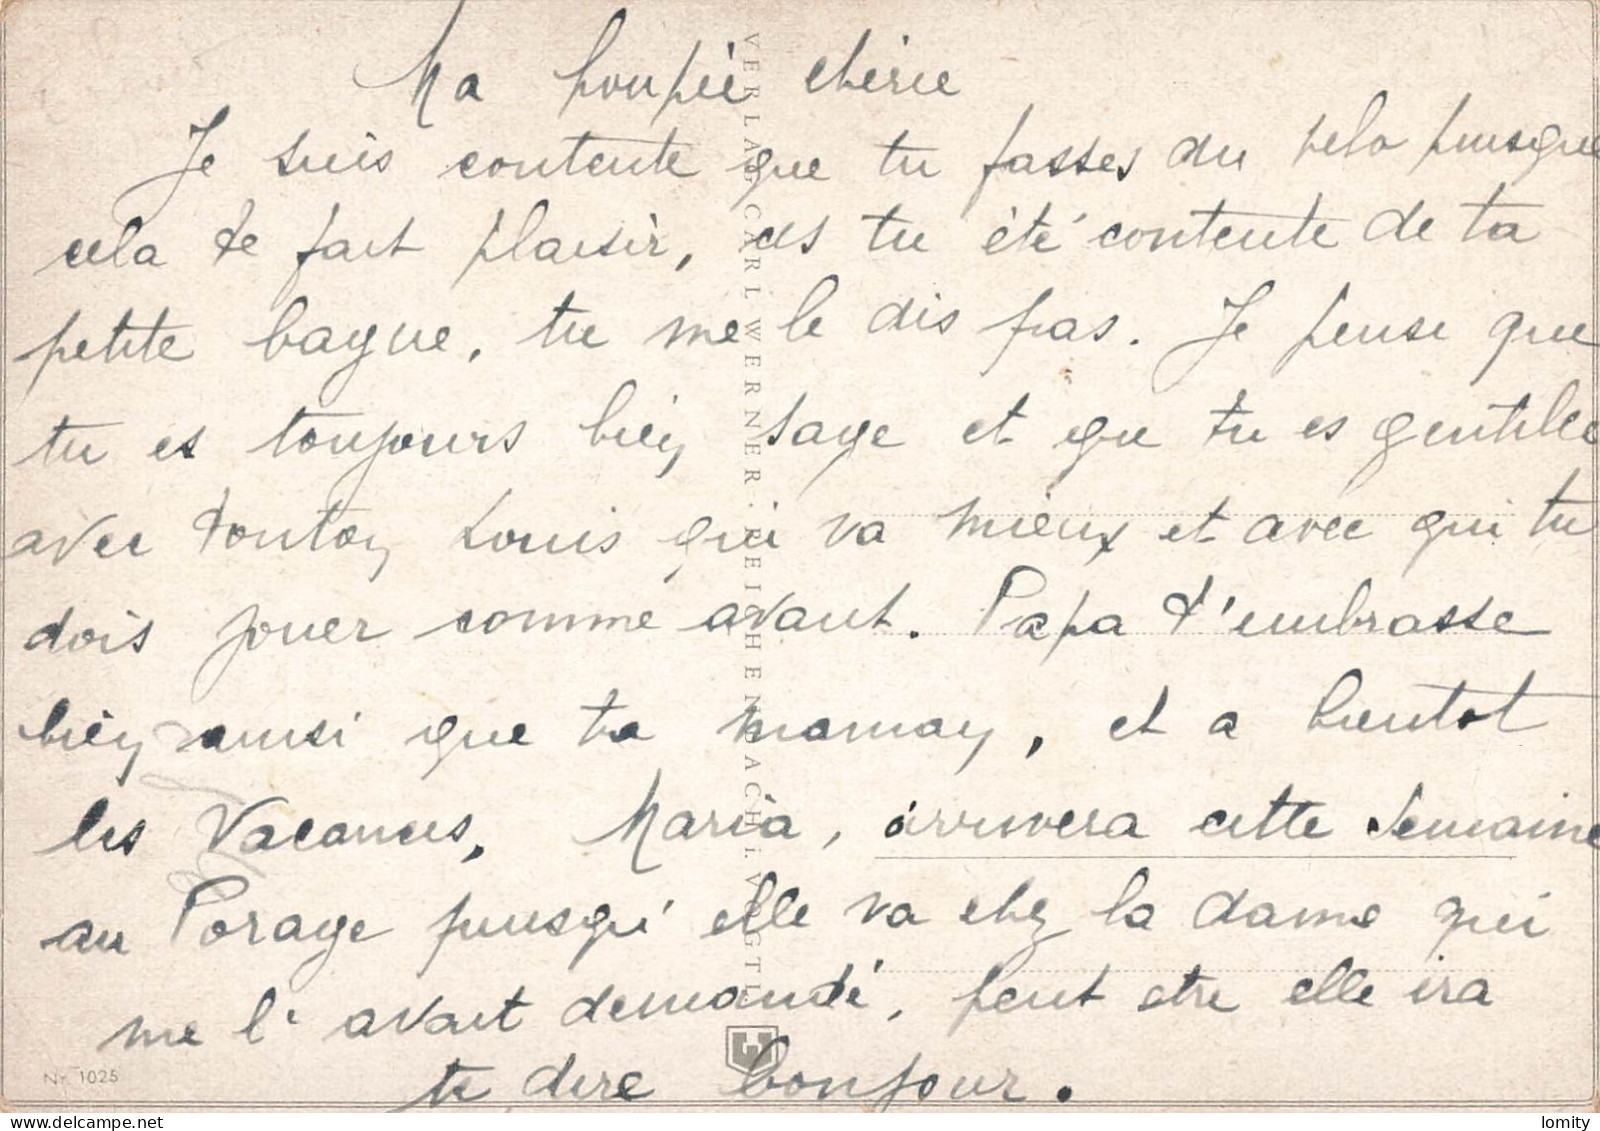 Ma poupée chérie
Je suis contente que tu fasses du velo puisque
cela te fait plaisir, as tu été contente de ta
petite bague, tu me le dis pas. Je pense que
tu es toujours bien sage et que tu es gentille
avec tonton Louis qui va mieux et avec qui tu
dois jouer comme avant. Papa t'embrasse
bien ainsi que ta maman, et a bientot
les Vacances. Maria, arrivera cette Semaine
au Porage puisqu' elle va chez la dame qui
me l' avait demandé, peut etre elle ira
te dire bonjour.
VERLAG CARL WERNER · REICHENBACH i. VOGTL
W
Nr. 1025
lomity